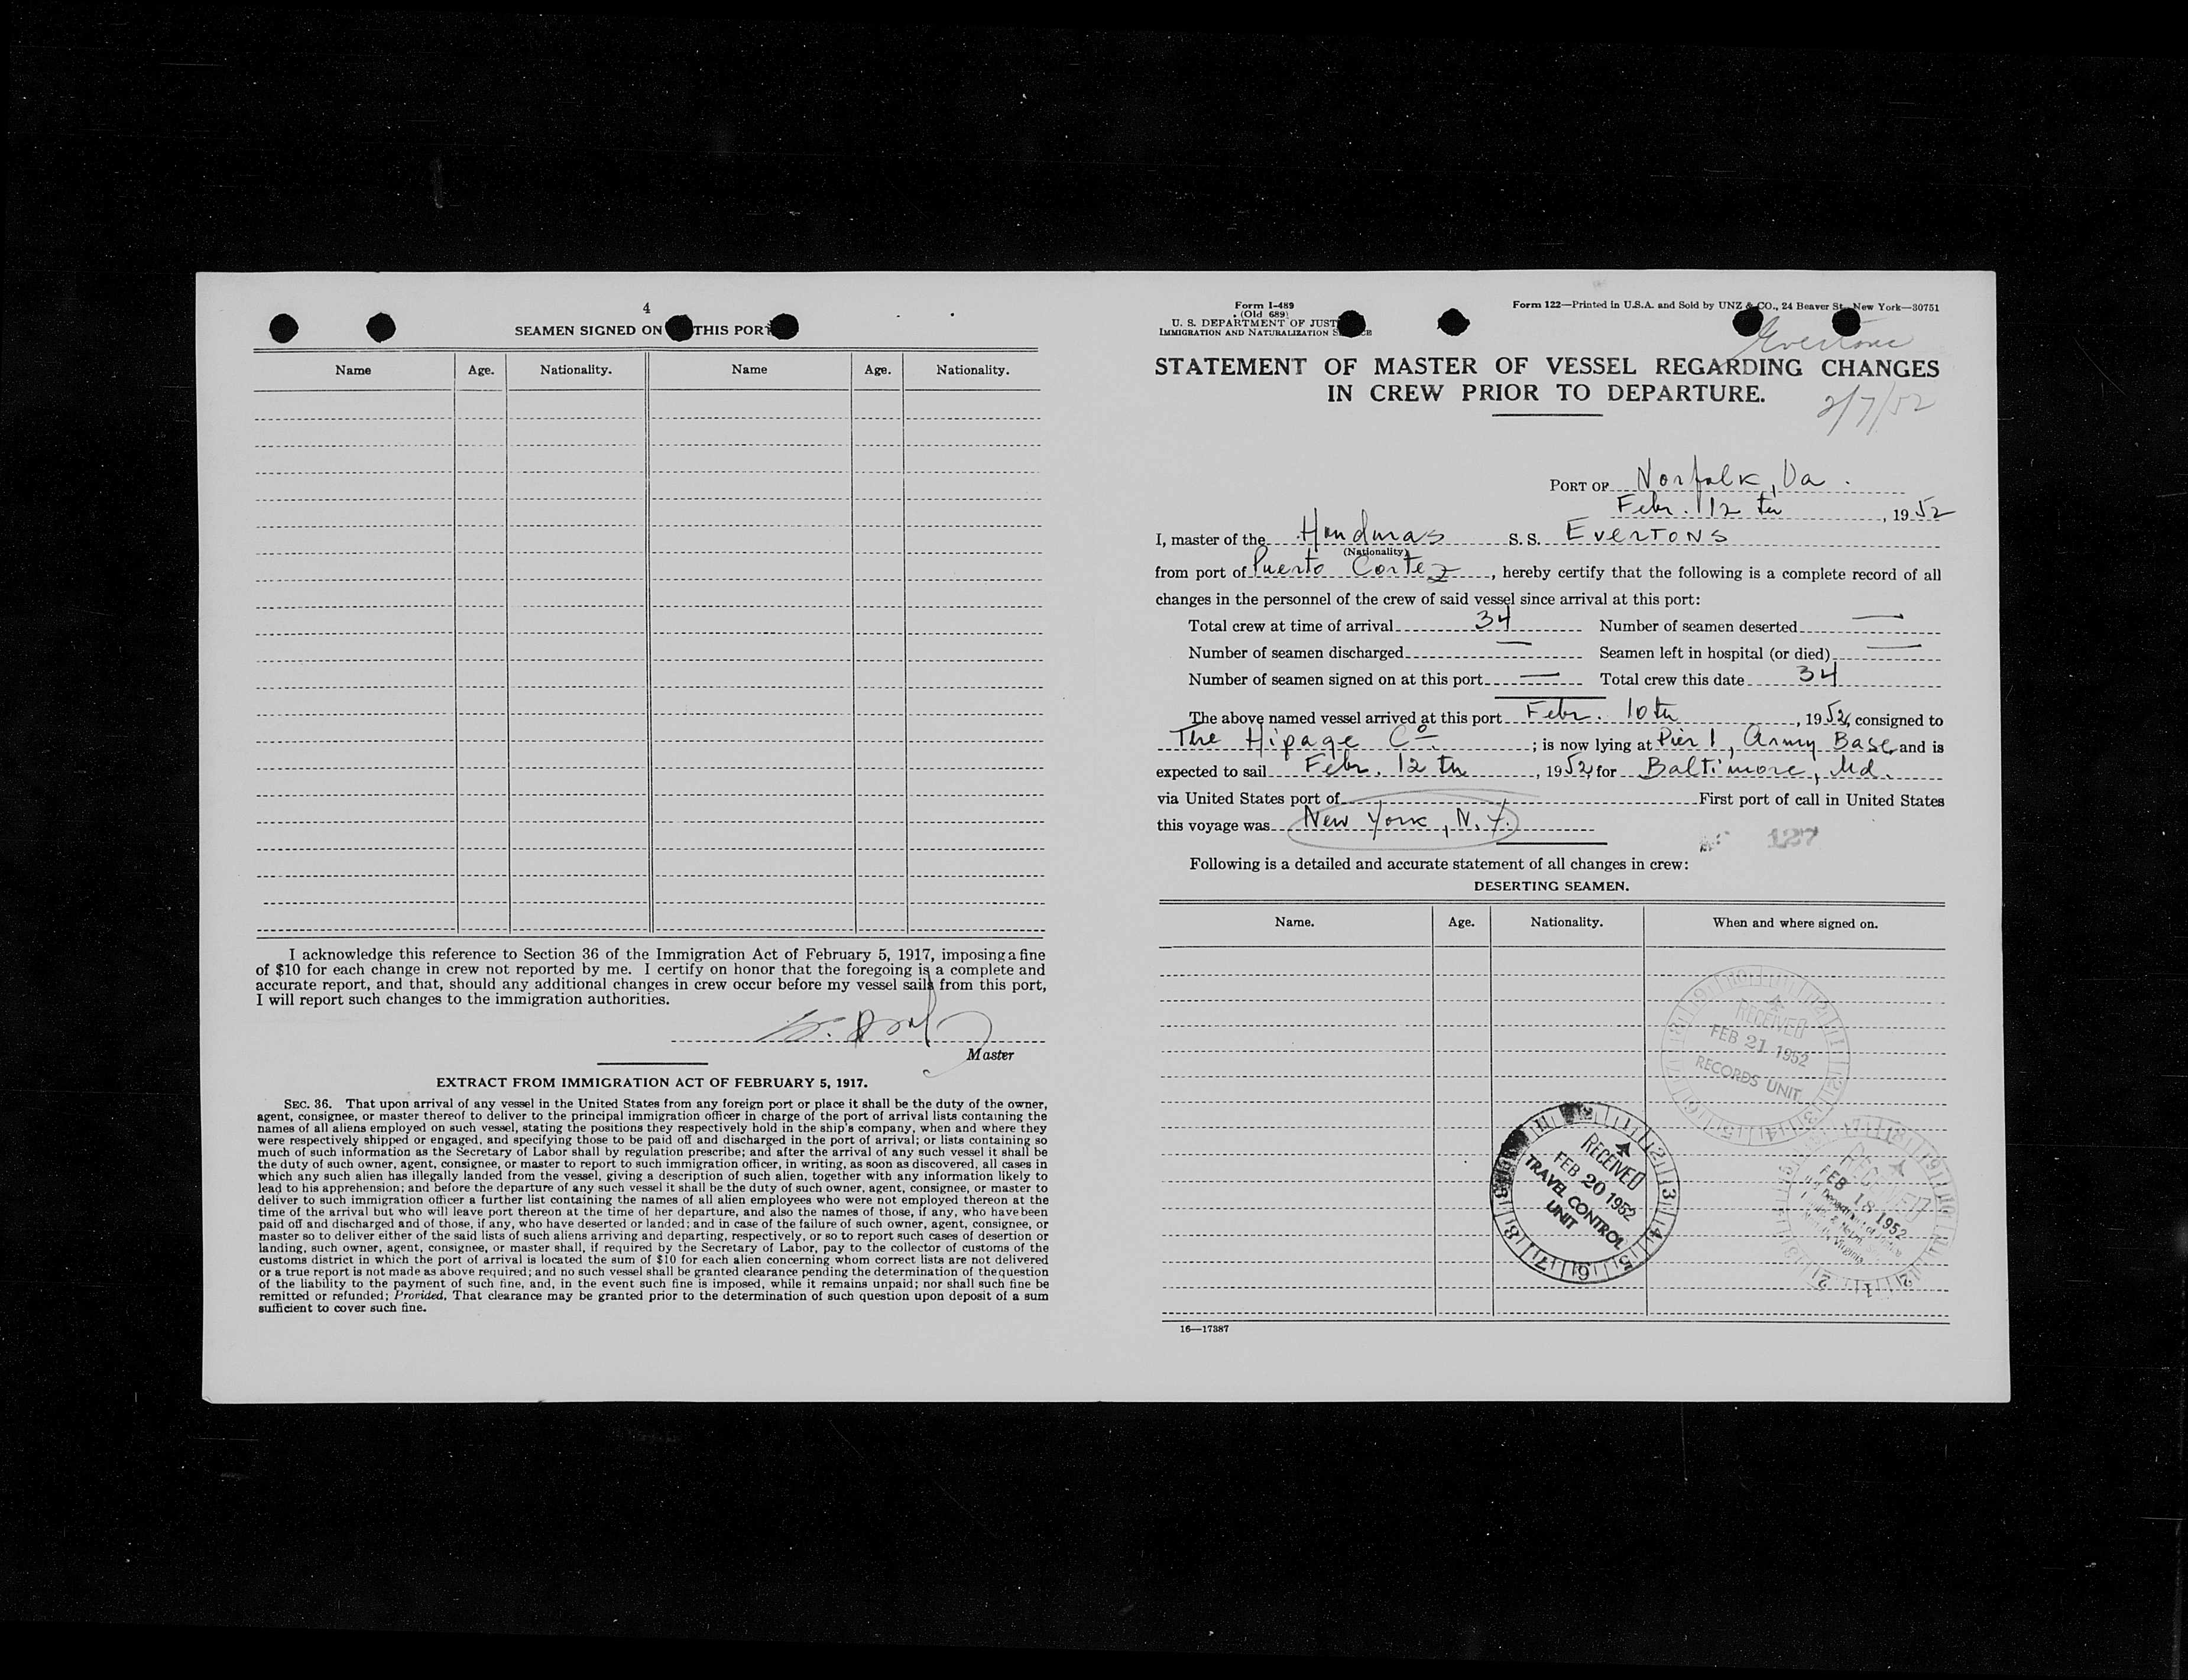 4
SEAMEN SIGNED ON THIS PORT
Name Age. Nationality. Name Age. Nationality.
I acknowledge this reference to Section 36 of the Immigration Act of February 5, 1917, imposing a fine
of $10 for each change in crew not reported by me. I certify on honor that the foregoing is a complete and
accurate report, and that, should any additional changes in crew occur before my vessel sails from this port,
I will report such changes to the immigration authorities.
Master
EXTRACT FROM IMMIGRATION ACT OF FEBRUARY 5, 1917.
SEC. 36. That upon arrival of any vessel in the United States from any foreign port or place it shall be the duty of the owner,
agent, consignee, or master thereof to deliver to the principal immigration officer in charge of the port of arrival lists containing the
names of all aliens employed on such vessel, stating the positions they respectively hold in the ship's company, when and where they
were respectively shipped or engaged, and specifying those to be paid off and discharged in the port of arrival; or lists containing so
much of such information as the Secretary of Labor shall by regulation prescribe; and after the arrival of any such vessel it shall be
the duty of such owner, agent, consignee, or master to report to such immigration officer, in writing, as soon as discovered, all cases in
which any such alien has illegally landed from the vessel, giving a description of such alien, together with any information likely to
lead to his apprehension; and before the departure of any such vessel it shall be the duty of such owner, agent, consignee, or master to
deliver to such immigration officer a further list containing the names of all alien employees who were not employed thereon at the
time of the arrival but who will leave port thereon at the time of her departure, and also the names of those, if any, who have been
paid off and discharged and of those, if any, who have deserted or landed; and in case of the failure of such owner, agent, consignee, or
master so to deliver either of the said lists of such aliens arriving and departing, respectively, or so to report such cases of desertion or
landing, such owner, agent, consignee, or master shall, if required by the Secretary of Labor, pay to the collector of customs of the
customs district in which the port of arrival is located the sum of $10 for each alien concerning whom correct lists are not delivered
or a true report is not made as above required; and no such vessel shall be granted clearance pending the determination of the question
of the liability to the payment of such fine, and, in the event such fine is imposed, while it remains unpaid; nor shall such fine be
remitted or refunded; Provided, That clearance may be granted prior to the determination of such question upon deposit of a sum
sufficient to cover such fine.
Form I-489
(Old 689)
U. S. DEPARTMENT OF JUST
IMMIGRATION AND NATURALIZATION S CE
Form 122—Printed in U.S.A. and Sold by UNZ & CO., 24 Beaver St., New York—30751
Evertons
STATEMENT OF MASTER OF VESSEL REGARDING CHANGES
IN CREW PRIOR TO DEPARTURE.
2/7/52
PORT OF Norfolk, Va.
Febr. 12 th, 1952
I, master of the Honduras S. S. EVERTONS
(Nationality)
from port of Puerto Cortez, hereby certify that the following is a complete record of all
changes in the personnel of the crew of said vessel since arrival at this port:
Total crew at time of arrival 34 Number of seamen deserted —
Number of seamen discharged — Seamen left in hospital (or died) —
Number of seamen signed on at this port — Total crew this date 34
The above named vessel arrived at this port Febr. 10th, 1952, consigned to
The Hipage Co.; is now lying at Pier 1, Army Base and is
expected to sail Febr. 12 th, 1952, for Baltimore, Md.
via United States port of First port of call in United States
this voyage was New York, N.Y.
127
Following is a detailed and accurate statement of all changes in crew:
DESERTING SEAMEN.
Name. Age. Nationality. When and where signed on.
RECEIVED
FEB 21 1952
RECORDS UNIT
RECEIVED
FEB 20 1952
TRAVEL CONTROL
UNIT
RECEIVED
FEB 18 1952
16—17387